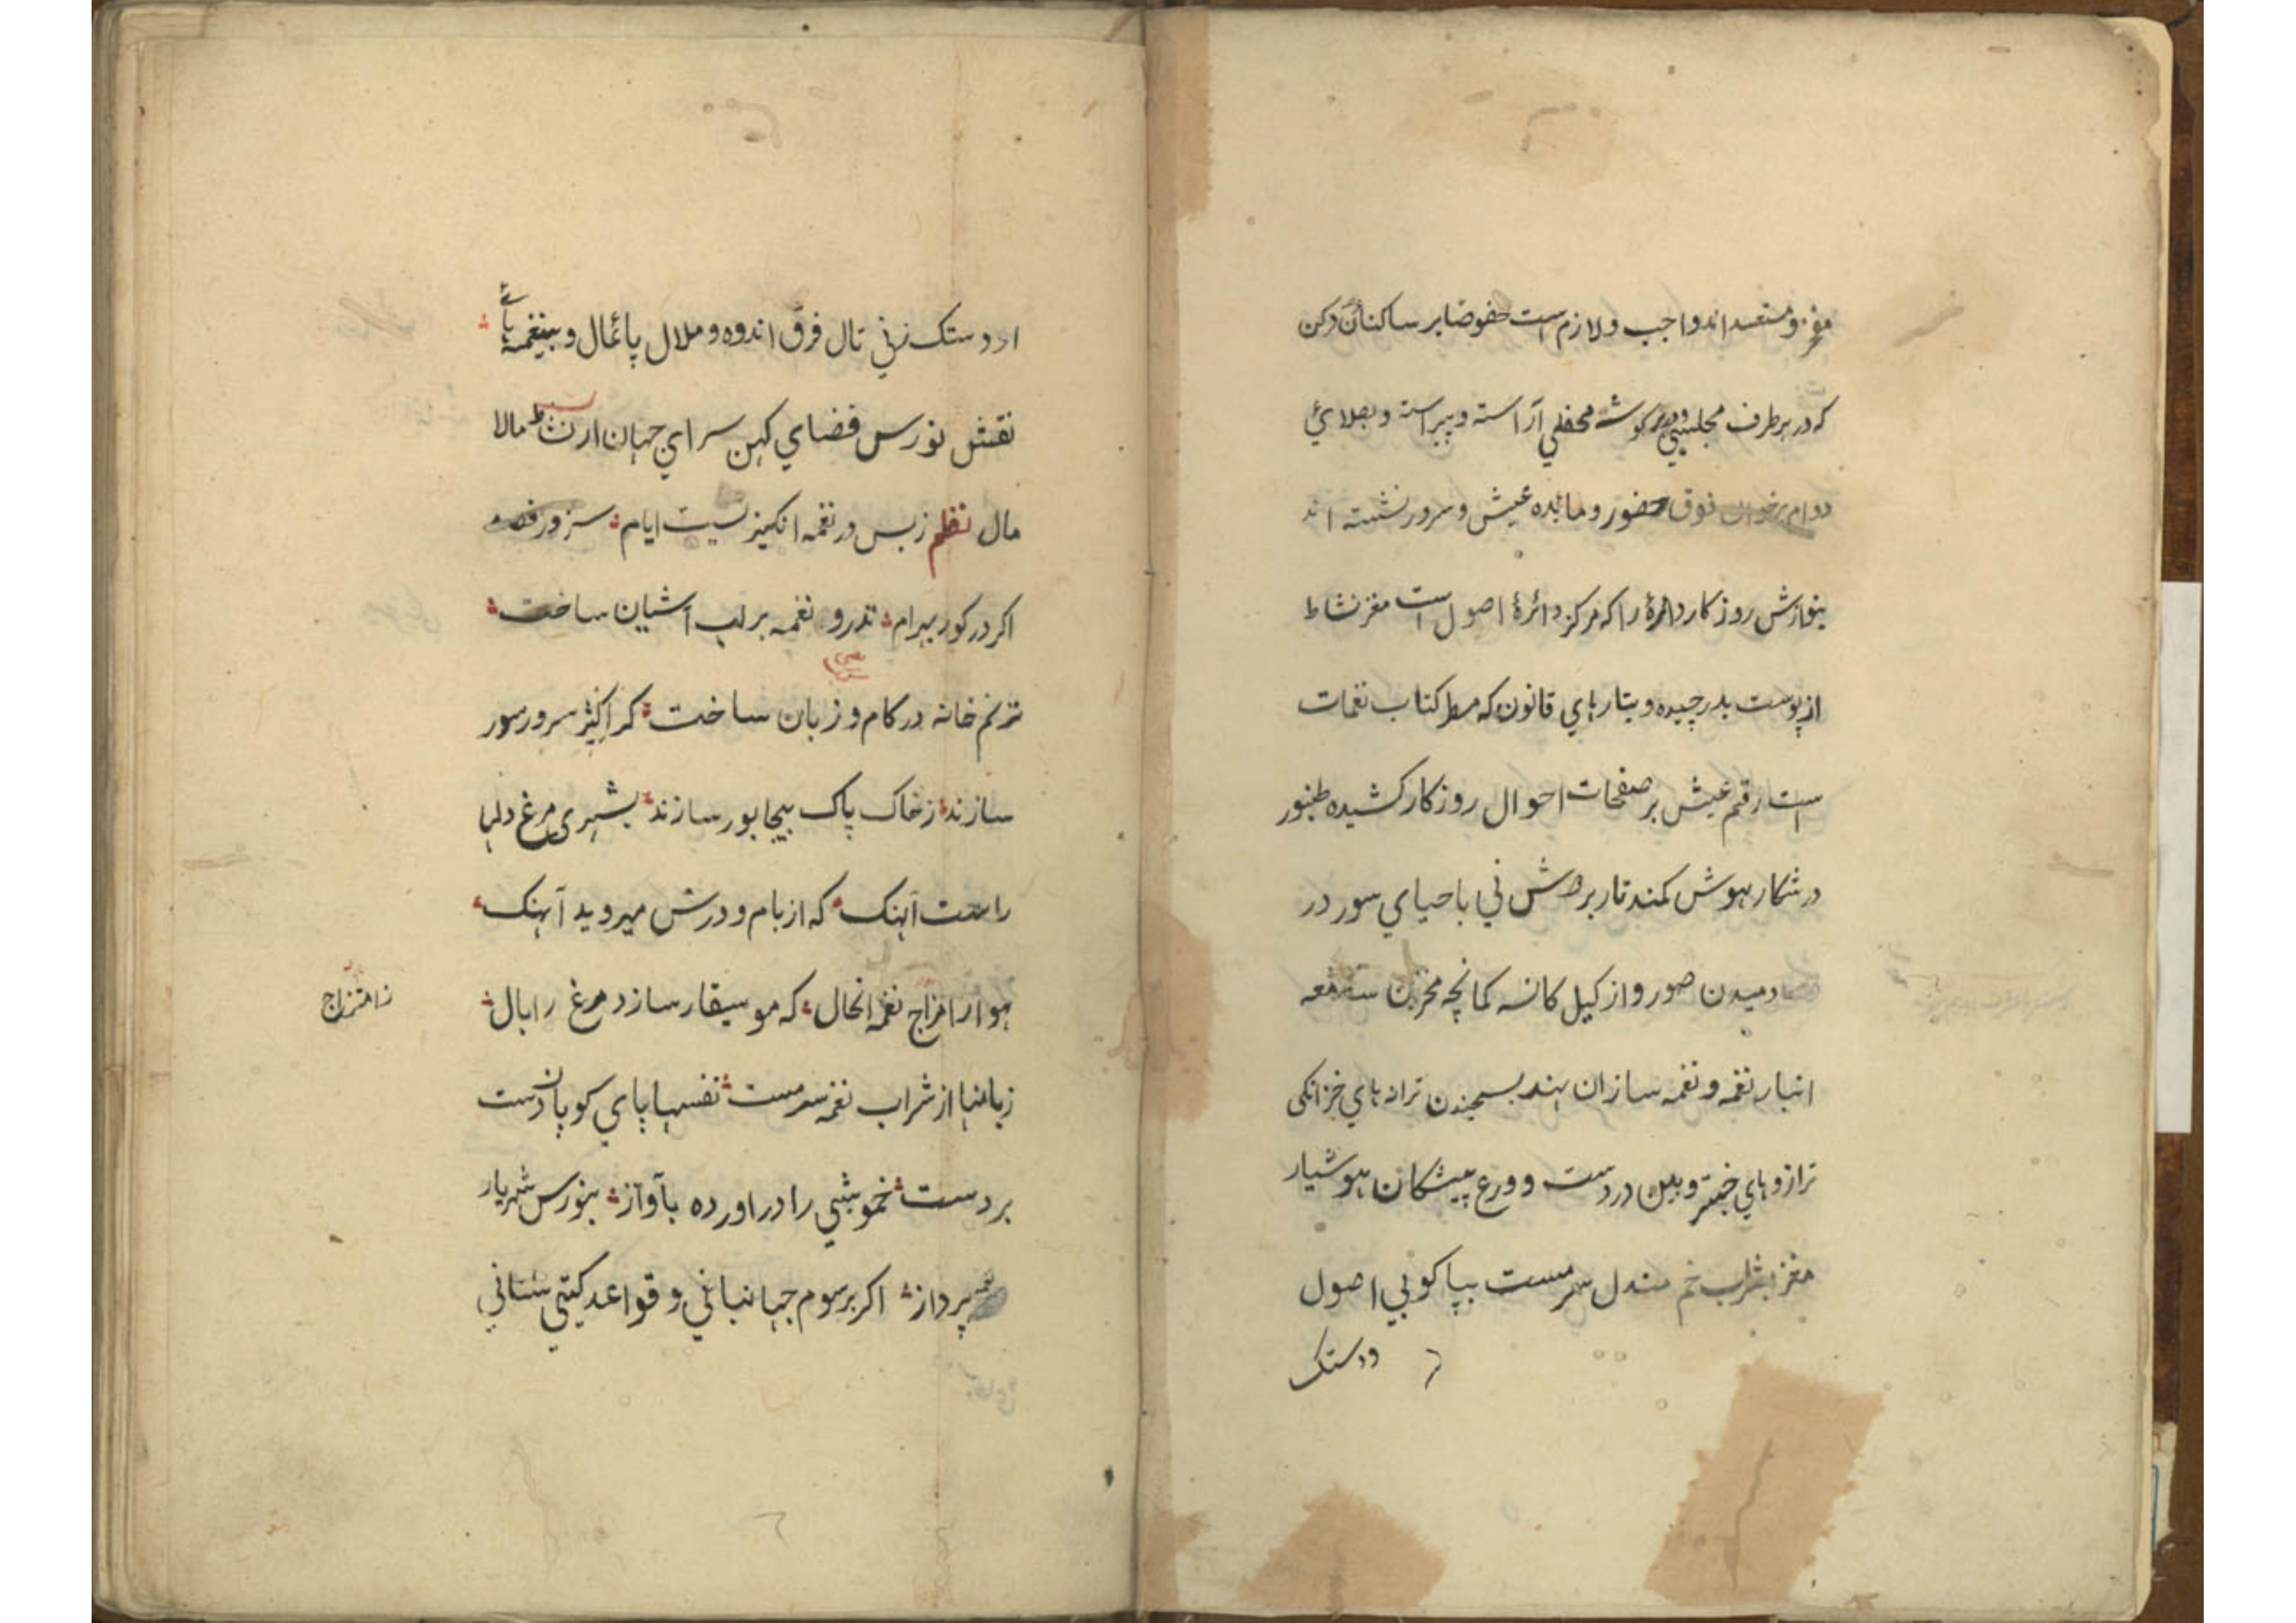 مفخر و مستعد اند واجب و لازم است خصوصا بر ساکنان دکن
که در هر طرف مجلسی و در هر کوشه محفلی آراسته و پیراسته و بصلای
دوام برخوان ذوق حضور و مائده عیش و سرور نشسته اند
بنوازش روزکار دائرهٔ را که مرکز دائرهٔ اصول است مغز نشاط
از پوست بدر چیده و بتارهای قانون که مسطر کتاب نغمات
است رقم عیش بر صفحات احوال روزکار کشیده طنبور
در شکار هوش کمند تار بر دوش نی باحیای سور در
دمیدن صور و از کیل کاسه کمانچه مخزن سامعه
انبار نغمه و نغمه سازان هند بسنجیدن ترانه های خزانکی
ترازوهای جنتر و بین در دست و ورع پیشکان هوشیار
مغز بشراب خم مندل سرمست بپاکوبی اصول
ودستک
از دستک زنی تال فرق اندوه و ملال پائمال و بنغمهای
نقش نورس فضای کهن سرای جهان از نشاط مالا
مال نظم زبس در نغمه انکیزیست ایام سزد ور قصد
اکر در کور بهرام تذرو نغمه بر لب آشیان ساخت
ترنم خانه در کام و زبان ساخت کر اکثر سرور سور
سازند ز خاک پاک بیجابور سازند بشهری مرغ دلها
راست آهنک که از بام و درش میروید آهنک
هوا را مزاج نغمه الحال که موسیقار سازد مرغ را بال
زامتزاج
زبانها از شراب نغمه سرمست نفسها پای کوبان دست
بر دست خموشی را در اورده بآواز بنورس شهریار
نغمه پرداز اکر برسوم جهانبانی و قواعد کیتی ستانی